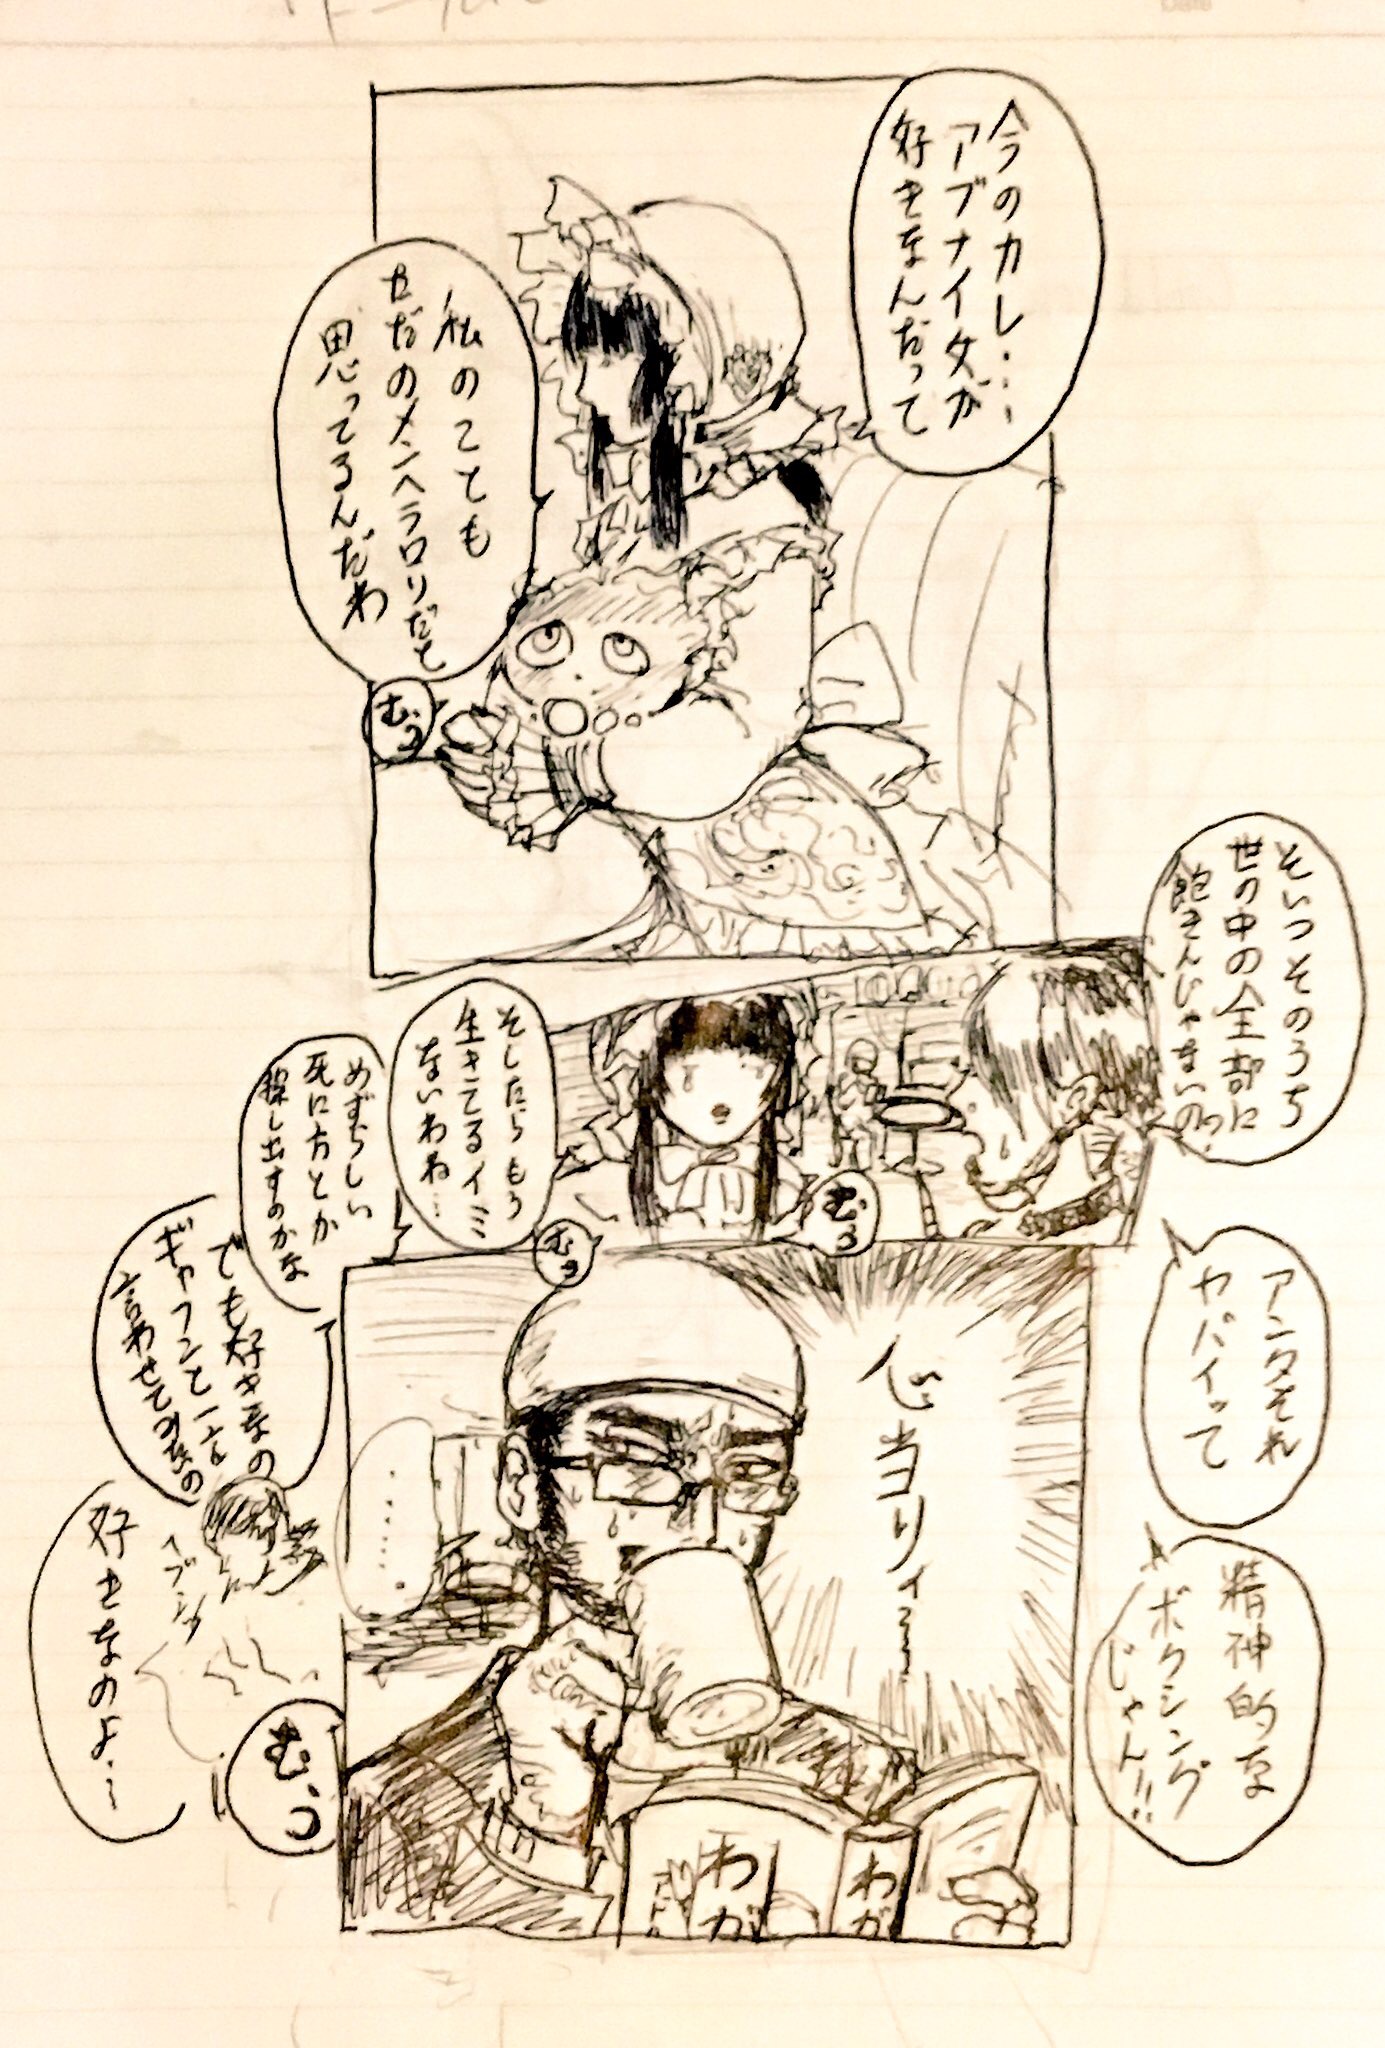 今のカレ・・・
アブナイ女が
好きなんだって
私のことも
ただのメンヘラロリだと
思ってるんだわ
むっ
そいつそのうち
世の中の全部に
飽きんじゃないの?
むっ
そしたらもう
生きてるイミ
ないわね…
めずらしい
死に方とか
探し出すのかな
アンタそれ
ヤバイって
精神的な
ボクシング
じゃん!!
でも好きなの
ギャフンと一言
言わせてみたいの
ヘブシッ
好きなのよ…
むっ
心当りィ
むっ
・・・・・。
わが
わが